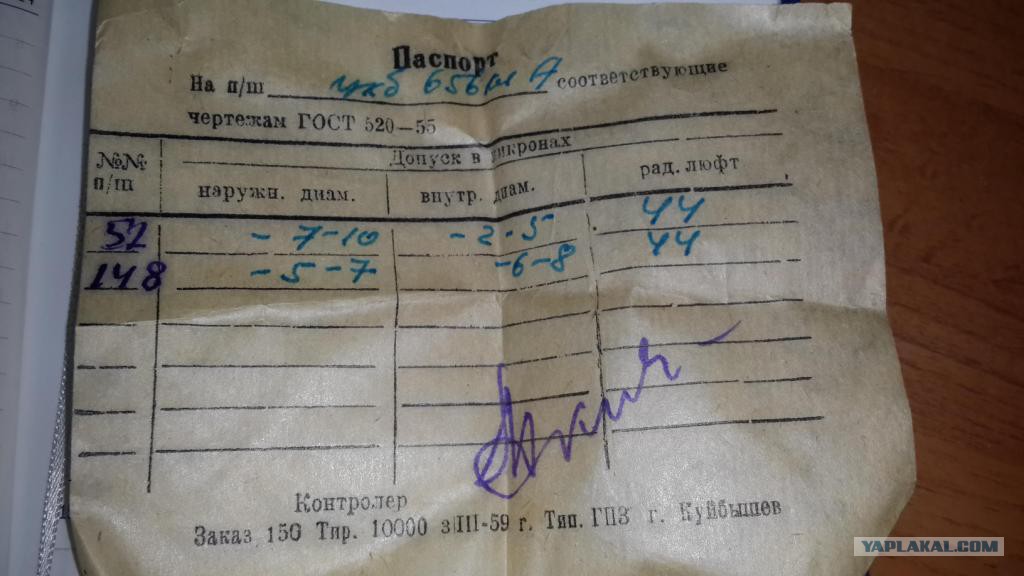 Паспорт
На п/ш цкб 656 А соответствующие
чертежам ГОСТ 520—55
№№ п/ш
Допуск в микронах
наружн. диам. внутр. диам. рад. люфт
52 -7-10 -2-5 44
148 -5-7 -6-8 44
Контролер
Заказ 150 Тир. 10000 3/III-59 г. Тип. ГПЗ г. Куйбышев
YAPLAKAL.COM